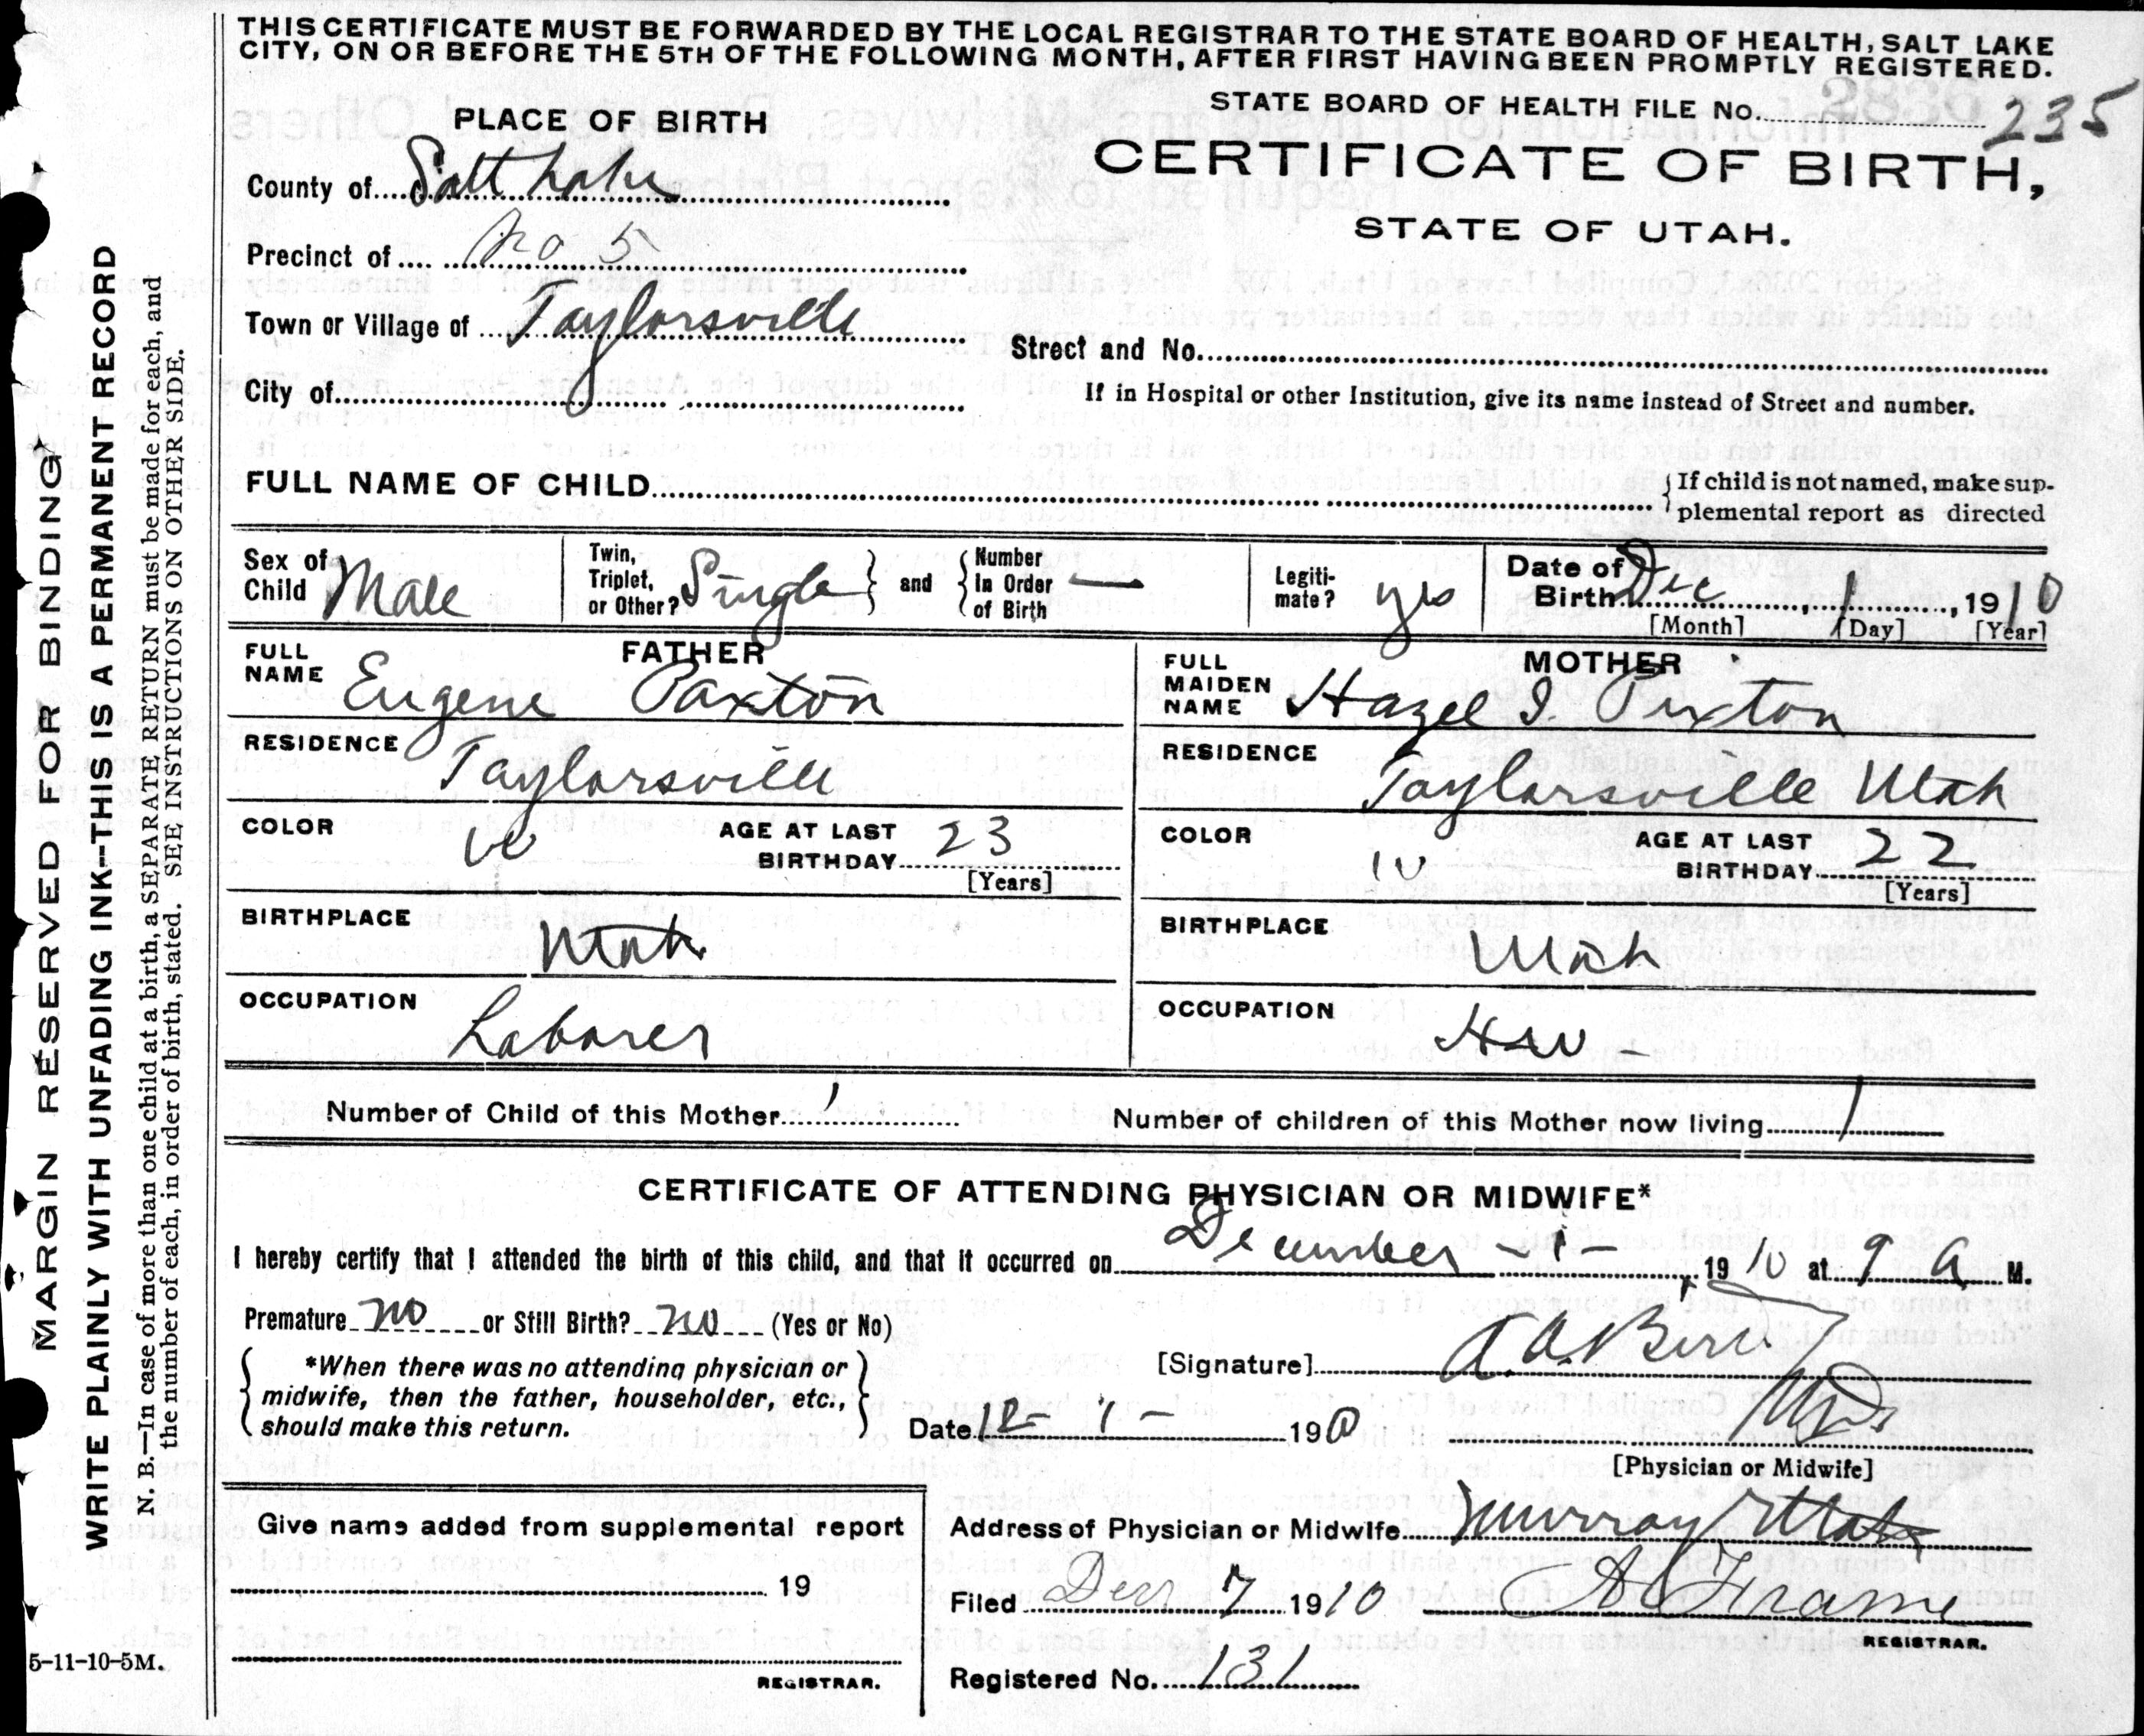 THIS CERTIFICATE MUST BE FORWARDED BY THE LOCAL REGISTRAR TO THE STATE BOARD OF HEALTH, SALT LAKE
CITY, ON OR BEFORE THE 5TH OF THE FOLLOWING MONTH, AFTER FIRST HAVING BEEN PROMPTLY REGISTERED.
STATE BOARD OF HEALTH FILE No. 235
PLACE OF BIRTH
CERTIFICATE OF BIRTH,
STATE OF UTAH.
County of Salt Lake
Precinct of No 5
Town or Village of Taylorsville
Street and No.
City of
If in Hospital or other Institution, give its name instead of Street and number.
FULL NAME OF CHILD
If child is not named, make sup-
plemental report as directed
Sex of Child Male
Twin, Triplet, or Other? Single and Number In Order of Birth —
Legiti-
mate? yes
Date of Birth Dec, 1, 1910
[Month] [Day] [Year]
FATHER
FULL NAME Eugene Paxton
RESIDENCE Taylorsville
COLOR W AGE AT LAST BIRTHDAY 23
[Years]
BIRTHPLACE Utah
OCCUPATION Laborer
MOTHER
FULL MAIDEN NAME Hazel I. Pixton
RESIDENCE Taylorsville Utah
COLOR W AGE AT LAST BIRTHDAY 22
[Years]
BIRTHPLACE Utah
OCCUPATION HW -
Number of Child of this Mother 1
Number of children of this Mother now living 1
CERTIFICATE OF ATTENDING PHYSICIAN OR MIDWIFE*
I hereby certify that I attended the birth of this child, and that it occurred on December - 1 - 1910 at 9 A M.
Premature no or Still Birth? no (Yes or No)
*When there was no attending physician or
midwife, then the father, householder, etc.,
should make this return.
[Signature] A. A.
MD
Date 12 - 1 - 190
[Physician or Midwife]
Give name added from supplemental report
19
REGISTRAR.
Address of Physician or Midwife Murray Utah
Filed Dec 7 1910 Frame
REGISTRAR.
Registered No. 131
5-11-10-5M.
MARGIN RESERVED FOR BINDING
WRITE PLAINLY WITH UNFADING INK--THIS IS A PERMANENT RECORD
N. B.—In case of more than one child at a birth, a SEPARATE RETURN must be made for each, and
the number of each, in order of birth, stated. SEE INSTRUCTIONS ON OTHER SIDE.